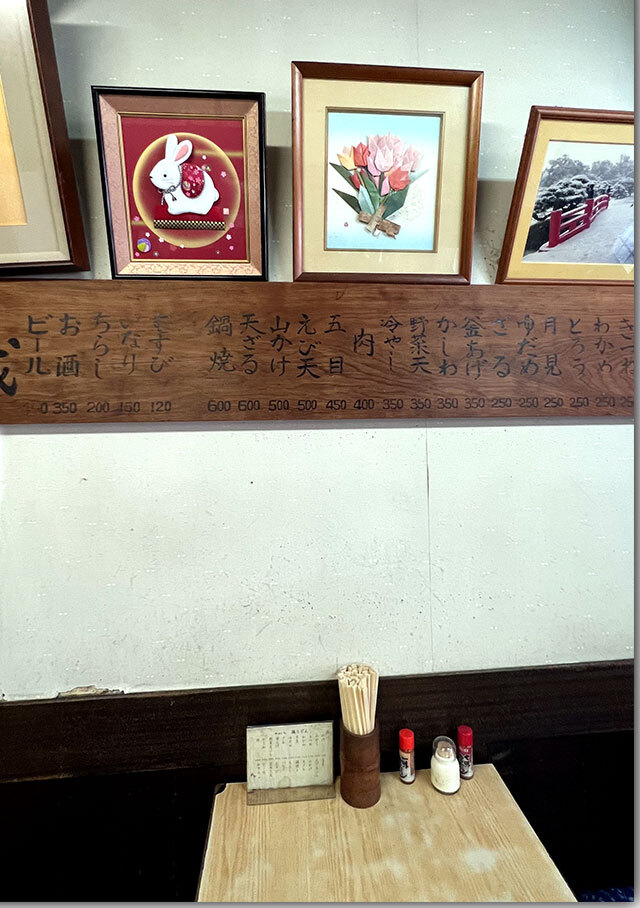 わかめ 250
とろろ 250
月見 250
ゆだめ 250
ざる 250
釜あげ 350
かしわ 350
野菜天 350
冷やし 350
肉 400
五目 450
えび天 500
山かけ 500
天ざる 600
鍋焼 600
むすび 120
いなり 150
ちらし 200
お酒 350
ビール 0